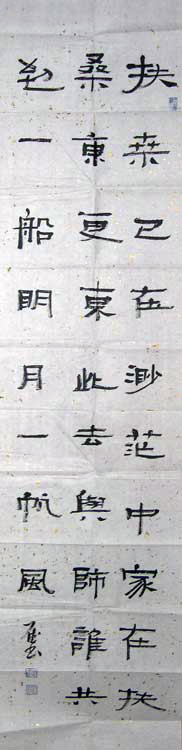 扶桒已在渺茫中家在扶
桑東更東此去與師誰共
到一船明月一帆風